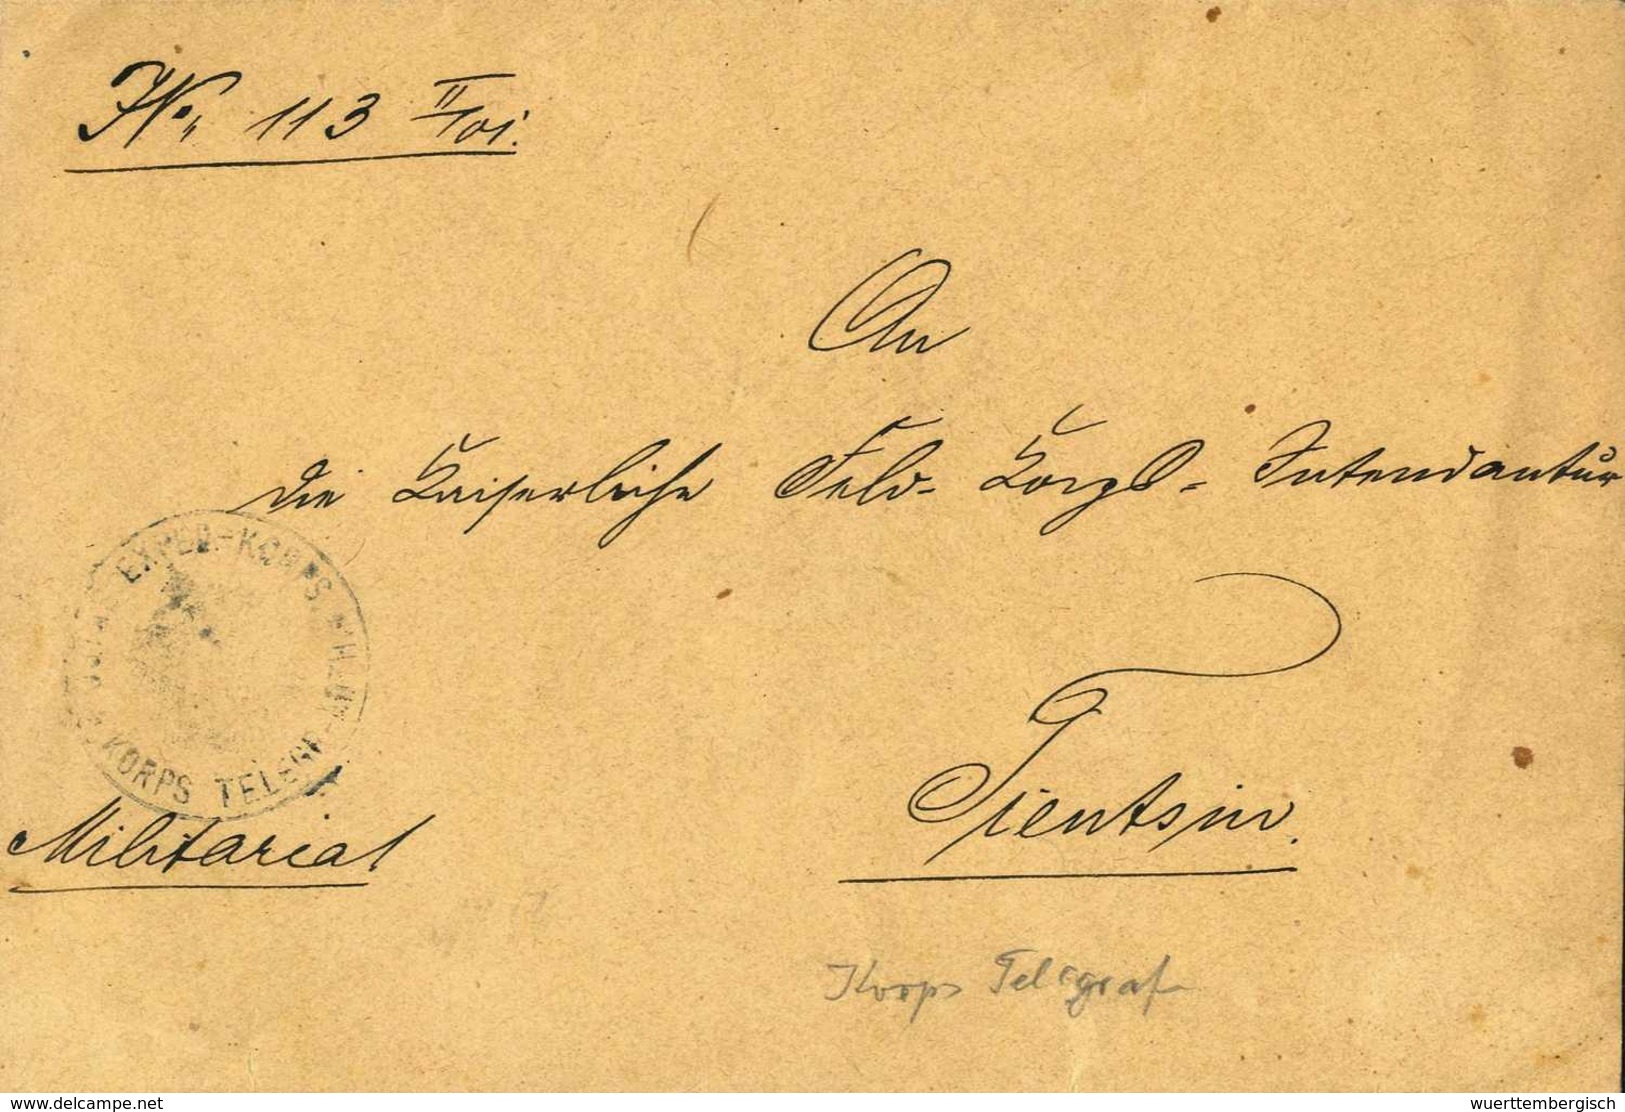 No. 113 II/01.
An
die Kaiserliche Feld-Korps-Intendantur
EXPED.-KORPS.
KORPS TELEGR
Tientsin.
Militaria!
Korps Telegraf
www.delcampe.net
wuerttembergisch